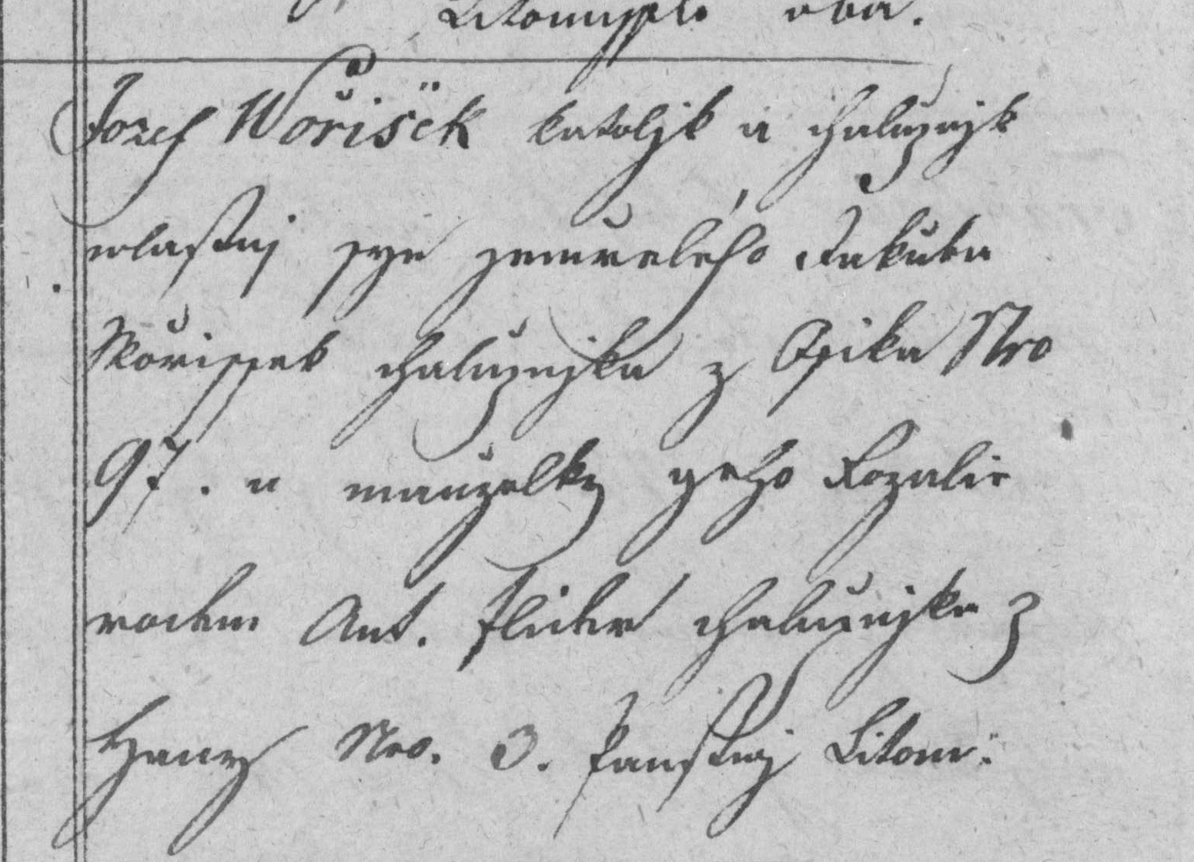 Litomyssle oba.
Jozef Wořisčk katoljk a chalupnjk
wlastnj syn zemřelého Jakuba
Wořissek chalupnjka z Opika Nro
97. a manželky geho Rozalie
rodem Ant. Flidr chalupnjka z
Nro. 3. Panstwj Litom: